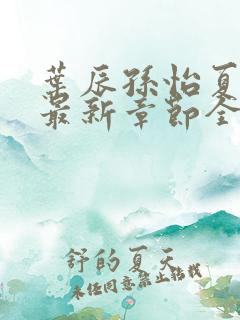 叶辰孙怡夏
最新章节全
舒的夏天
未经同意禁止转载